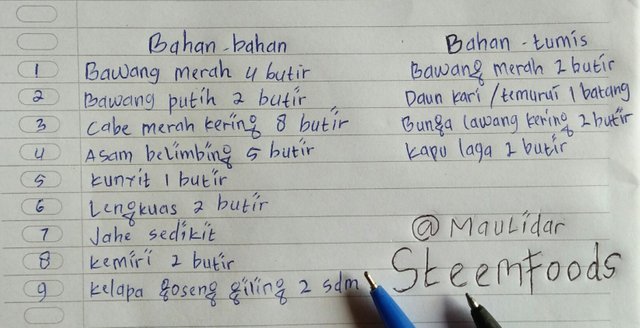 Bahan-bahan
1 Bawang merah 4 butir
2 Bawang putih 2 butir
3 Cabe merah kering 8 butir
4 Asam belimbing 5 butir
5 Kunyit 1 butir
6 Lengkuas 2 butir
7 Jahe sedikit
8 Kemiri 2 butir
9 Kelapa goseng giling 2 sdm
Bahan-tumis
Bawang merah 2 butir
Daun kari/temurui 1 batang
Bunga lawang kering 2 butir
Kapu laga 2 butir
@Maulidar
SteemFoods